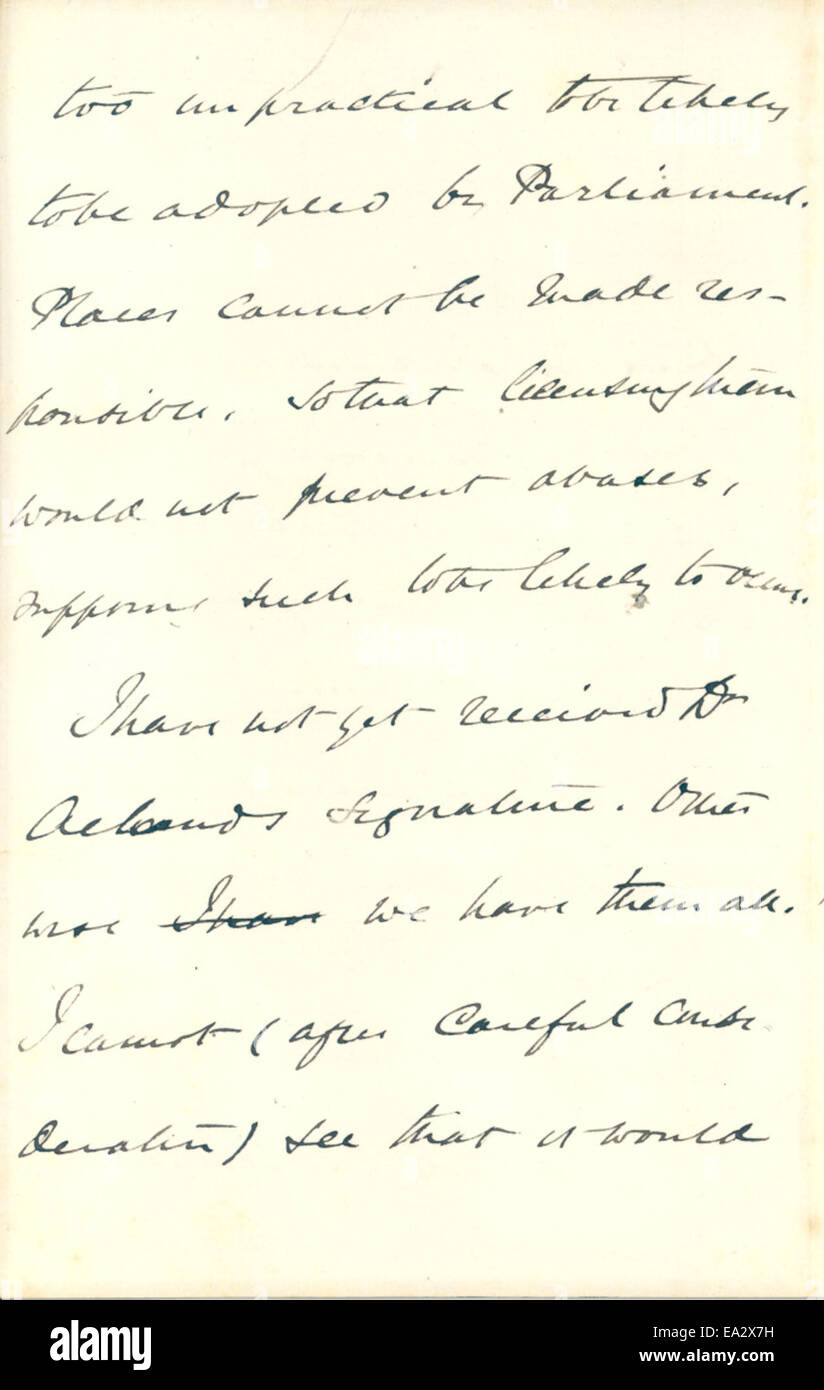 too unpractical to be likely
to be adopted by Parliament.
Places cannot be made res-
ponsible. So that licensing them
would not prevent abuses,
supposing such to be likely to occur.
I have not yet received Dr
Aclands signature. Other
wise I have we have them all.
I cannot (after careful consi
deration) see that it would
alamy
alamy stock photo
EA2X7H
www.alamy.com